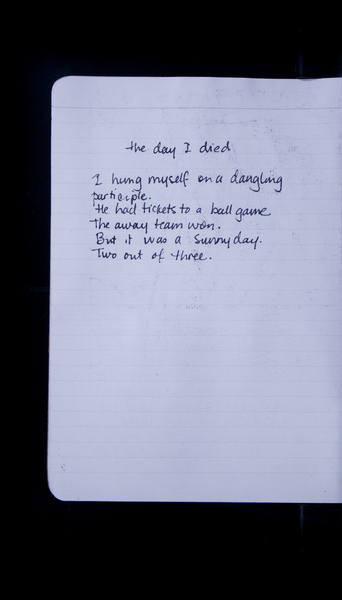 the day I died
I hung myself on a dangling
participle.
He had tickets to a ball game
The away team won.
But it was a sunny day.
Two out of three.